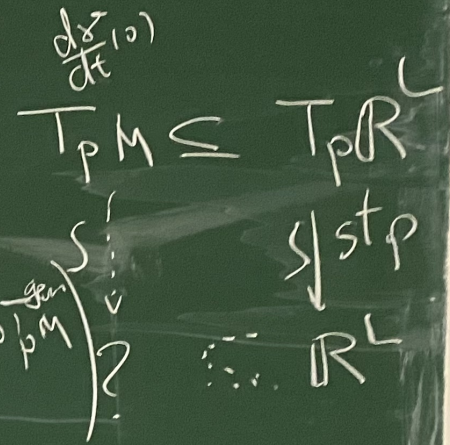 dγ/dt (0)
T_p M ⊆ T_p ℝ^L
∫ ∫ ↓ st_p
gen
pM ) ? ℝ^L